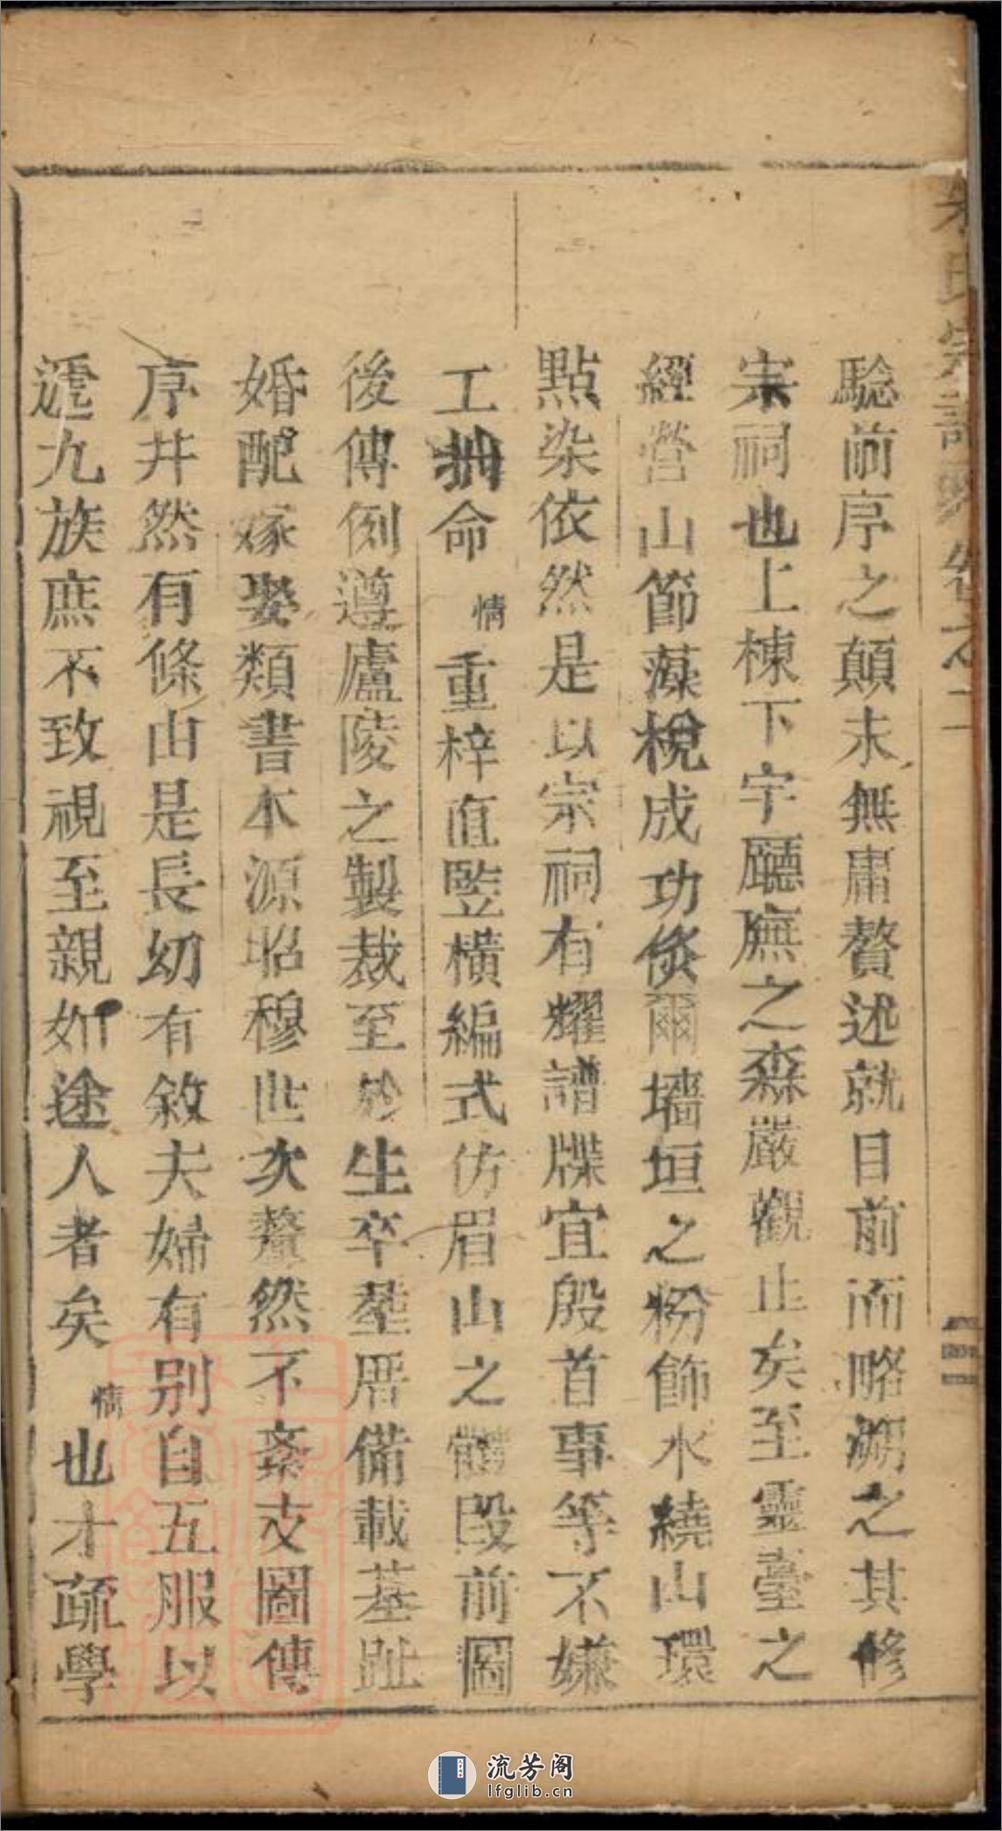 氏宗譜 卷之二
驗前序之顛末無庸贅述就目前而略溯之其修
宗祠也上棟下宇廳廡之森嚴觀止矣至靈臺之
經營山節藻梲成功倐爾墻垣之粉飾水繞山環
點染依然是以宗祠有耀譜牒宜殷首事等不嫌
工拙命 情 重梓直竪橫編式仿眉山之體段前圖
後傳例遵廬陵之製裁至於生卒塟厝備載墓趾
婚配嫁娶類書本源昭穆世次釐然不紊支圖傳
序井然有條由是長幼有敘夫婦有別自五服以
遞九族庶不致視至親如途人者矣 情 也才疏學
流芳阁
lfglib.cn